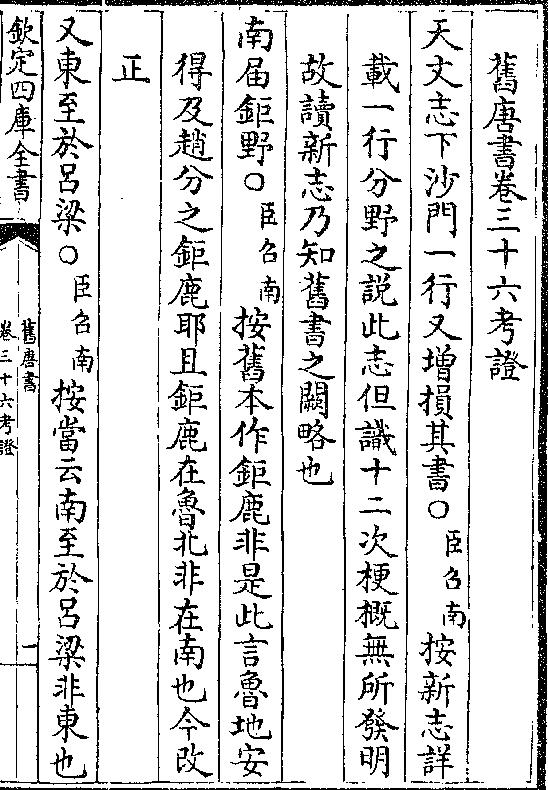 舊唐書卷三十六考證
天文志下沙門一行又增損其書○臣召南按新志詳
載一行分野之説此志但識十二次梗概無所發明
故讀新志乃知舊書之闕略也
南届鉅野○臣召南按舊本作鉅鹿非是此言魯地安
得及趙分之鉅鹿耶且鉅鹿在魯北非在南也今改
正
又東至於呂梁○臣召南按當云南至於呂梁非東也
欽定四庫全書
舊唐書
卷三十六考證
一